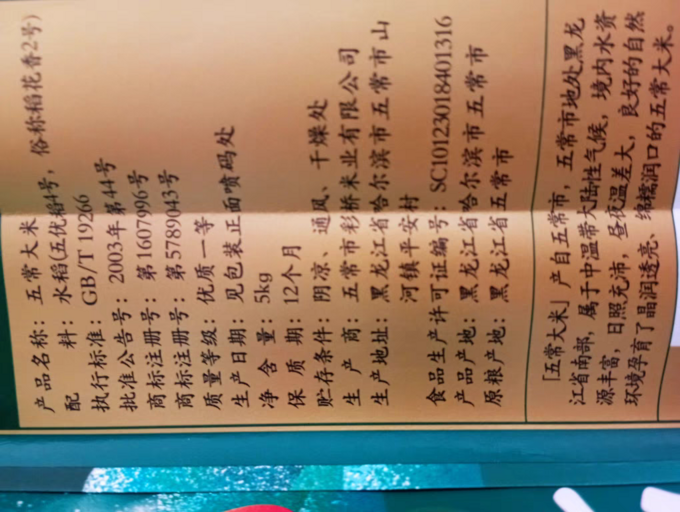 产品名称：五常大米
配料：水稻(五优稻4号，俗称稻花香2号)
执行标准：GB/T 19266
批准公告号：2003年第44号
商标注册号：第1607996号
商标注册号：第5789043号
质量等级：优质一等
生产日期：见包装正面喷码处
净含量：5kg
保质期：12个月
贮存条件：阴凉、通风、干燥处
生产商：五常市彩桥米业有限公司
生产地址：黑龙江省哈尔滨市五常市山
河镇平安村
食品生产许可证编号：SC10123018401316
产品产地：黑龙江省哈尔滨市五常市
原粮产地：黑龙江省五常市
「五常大米」产自五常市，五常市地处黑龙
江省南部，属于中温带大陆性气候，境内水资
源丰富，日照充沛，昼夜温差大，良好的自然
环境孕育了晶润透亮、绵糯润口的五常大米。